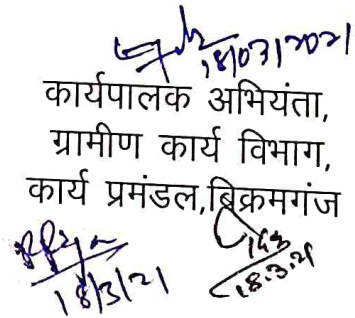 18/03/2021
कार्यपालक अभियंता,
ग्रामीण कार्य विभाग,
कार्य प्रमंडल,बिक्रमगंज
18/3/21
18.3.21